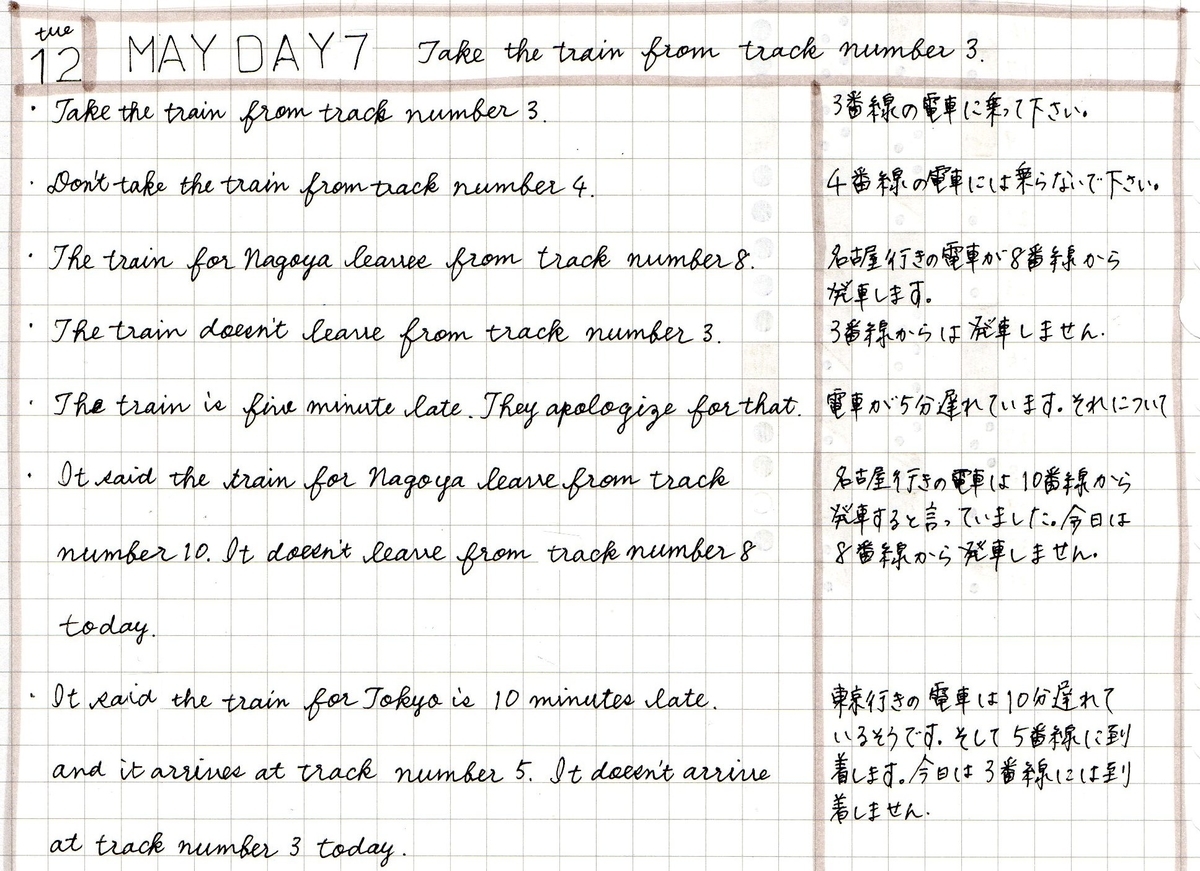 tue
12 MAY DAY7 Take the train from track number 3.
· Take the train from track number 3.
3番線の電車に乗って下さい。
· Don't take the train from track number 4.
4番線の電車には乗らないで下さい。
· The train for Nagoya leaves from track number 8.
名古屋行きの電車が8番線から
発車します。
· The train doesn't leave from track number 3.
3番線からは発車しません.
· The train is five minute late. They apologize for that.
電車が5分遅れています。それについて
· It said the train for Nagoya leave from track
number 10. It doesn't leave from track number 8
today.
名古屋行きの電車は10番線から
発車すると言っていました。今日は
8番線から発車しません。
· It said the train for Tokyo is 10 minutes late.
and it arrives at track number 5. It doesn't arrive
at track number 3 today.
東京行きの電車は10分遅れて
いるそうです。そして5番線に到
着します。今日は3番線には到
着しません.